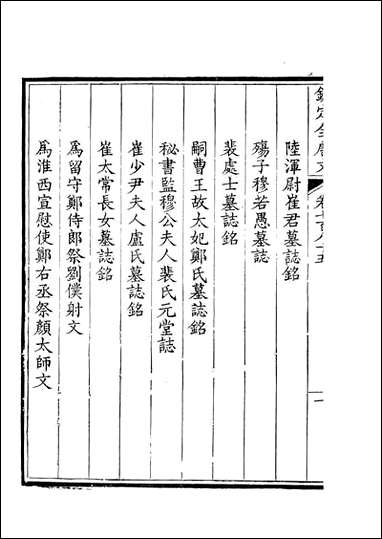 陸渾尉崔君墓誌銘
殤子穆若愚墓誌
裴處士墓誌銘
嗣曹王故太妃鄭氏墓誌銘
秘書監穆公夫人裴氏元堂誌
崔少尹夫人盧氏墓誌銘
崔太常長女墓誌銘
為留守鄭侍郎祭劉僕射文
為淮西宣慰使鄭右丞祭顏太師文